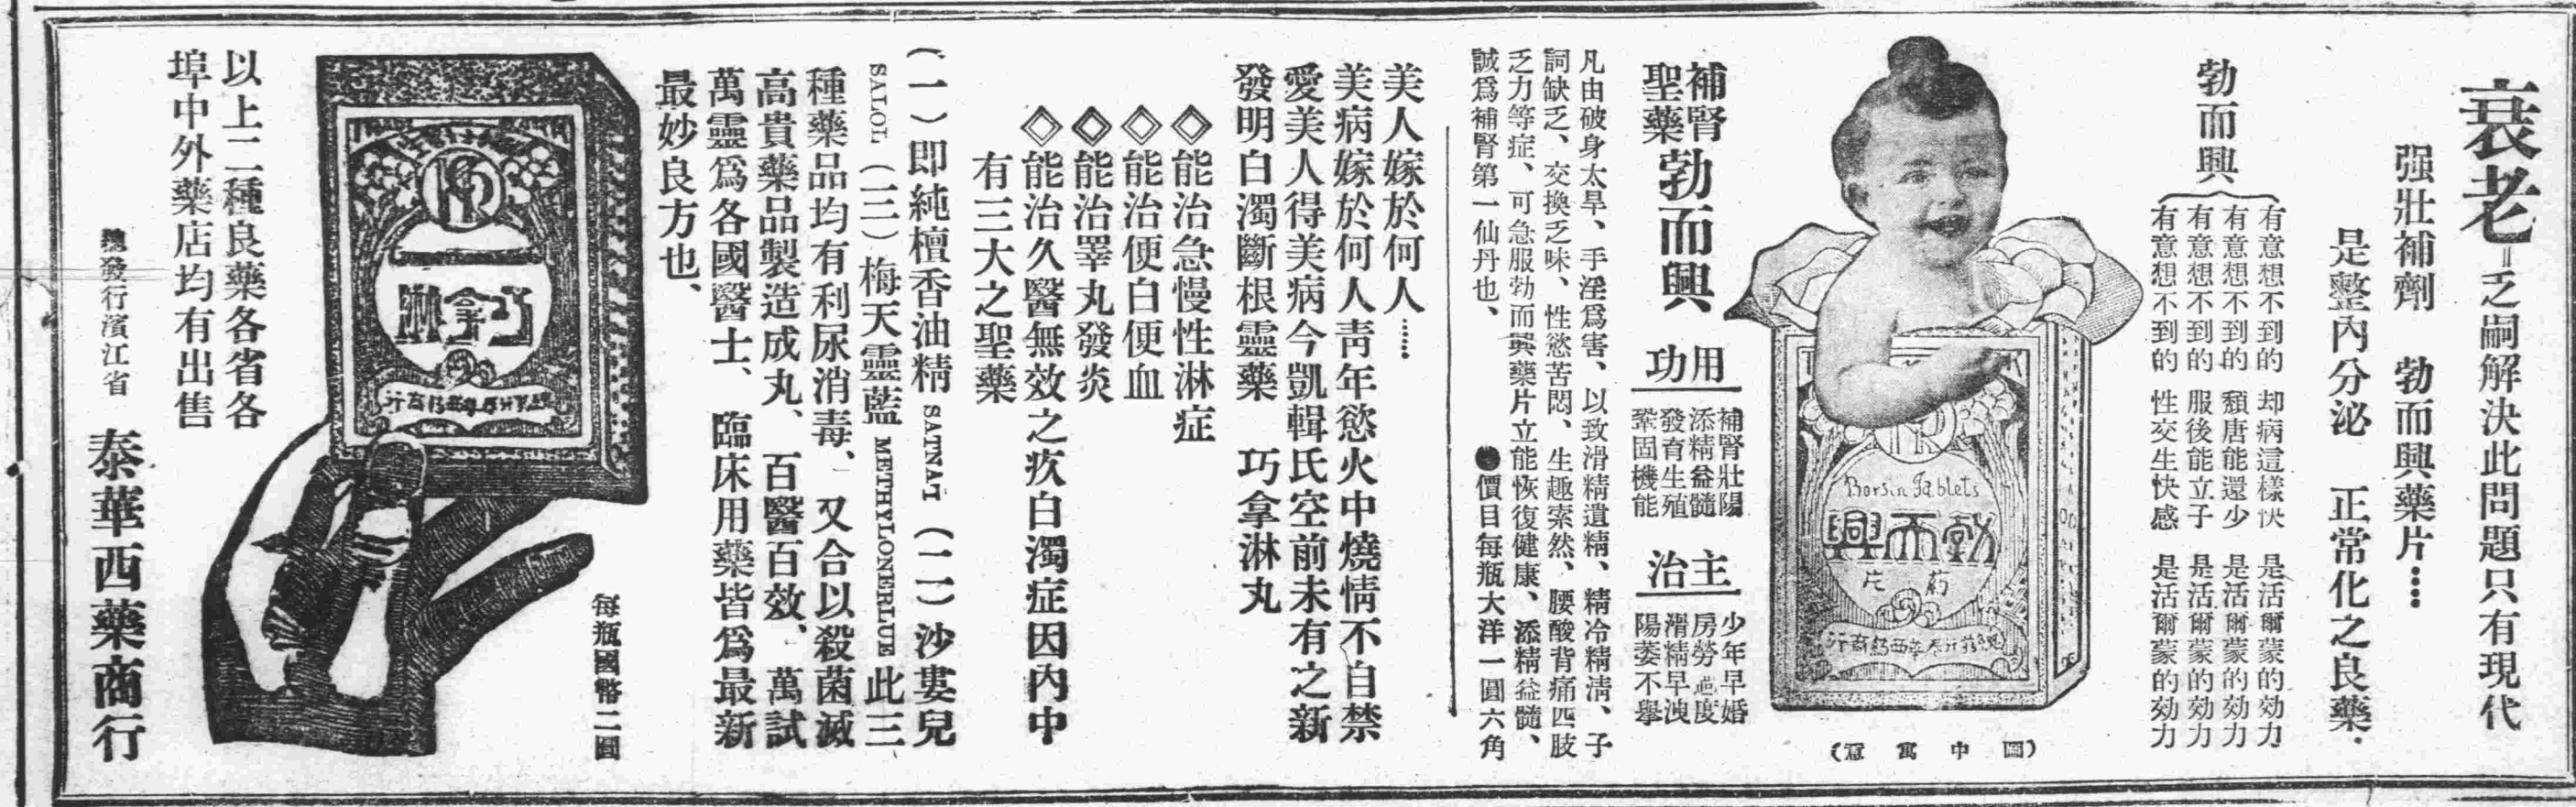 衰老=乏嗣解決此問題只有現代
强壯補劑　勃而興藥片……
是整內分泌　正常化之良藥．
勃而興
有意想不到的　却病這樣快　是活爾蒙的効力
有意想不到的　頹唐能還少　是活爾蒙的効力
有意想不到的　服後能立子　是活爾蒙的効力
有意想不到的　性交生快感　是活爾蒙的効力
Borsin Tablets
勃而興
药片
(圖中寓意)
補腎聖藥勃而興
功用
補腎壯陽
添精益髓
發育生殖
鞏固機能
主治
少年早婚
房勞過度
滑精早洩
陽萎不擧
凡由破身太早、手淫爲害、以致滑精遺精、精冷精淸、子
詞缺乏、交換乏味、性慾苦悶、生趣索然、腰酸背痛四肢
乏力等症、可急服勃而興藥片立能恢復健康、添精益髓、
誠爲補腎第一仙丹也、　●價目每瓶大洋一圓六角
美人嫁於何人……
美病嫁於何人靑年慾火中燒情不自禁
愛美人得美病今凱輯氏空前未有之新
發明白濁斷根靈藥　巧拿淋丸
◇能治急慢性淋症
◇能治便白便血
◇能治睪丸發炎
◇能治久醫無效之疚白濁症因內中
有三大之聖藥
(一)即純檀香油精 SATNAT (二)沙婁兒
SALOL (三)梅天靈藍 METHYLONERLUE 此三
種藥品均有利尿消毒、又合以殺菌滅
高貴藥品製造成丸、百醫百效、萬試
萬靈爲各國醫士、臨床用藥皆爲最新
最妙良方也、
巧拿淋
每瓶國幣二圓
以上二種良藥各省各
埠中外藥店均有出售
總發行濱江省　泰華西藥商行